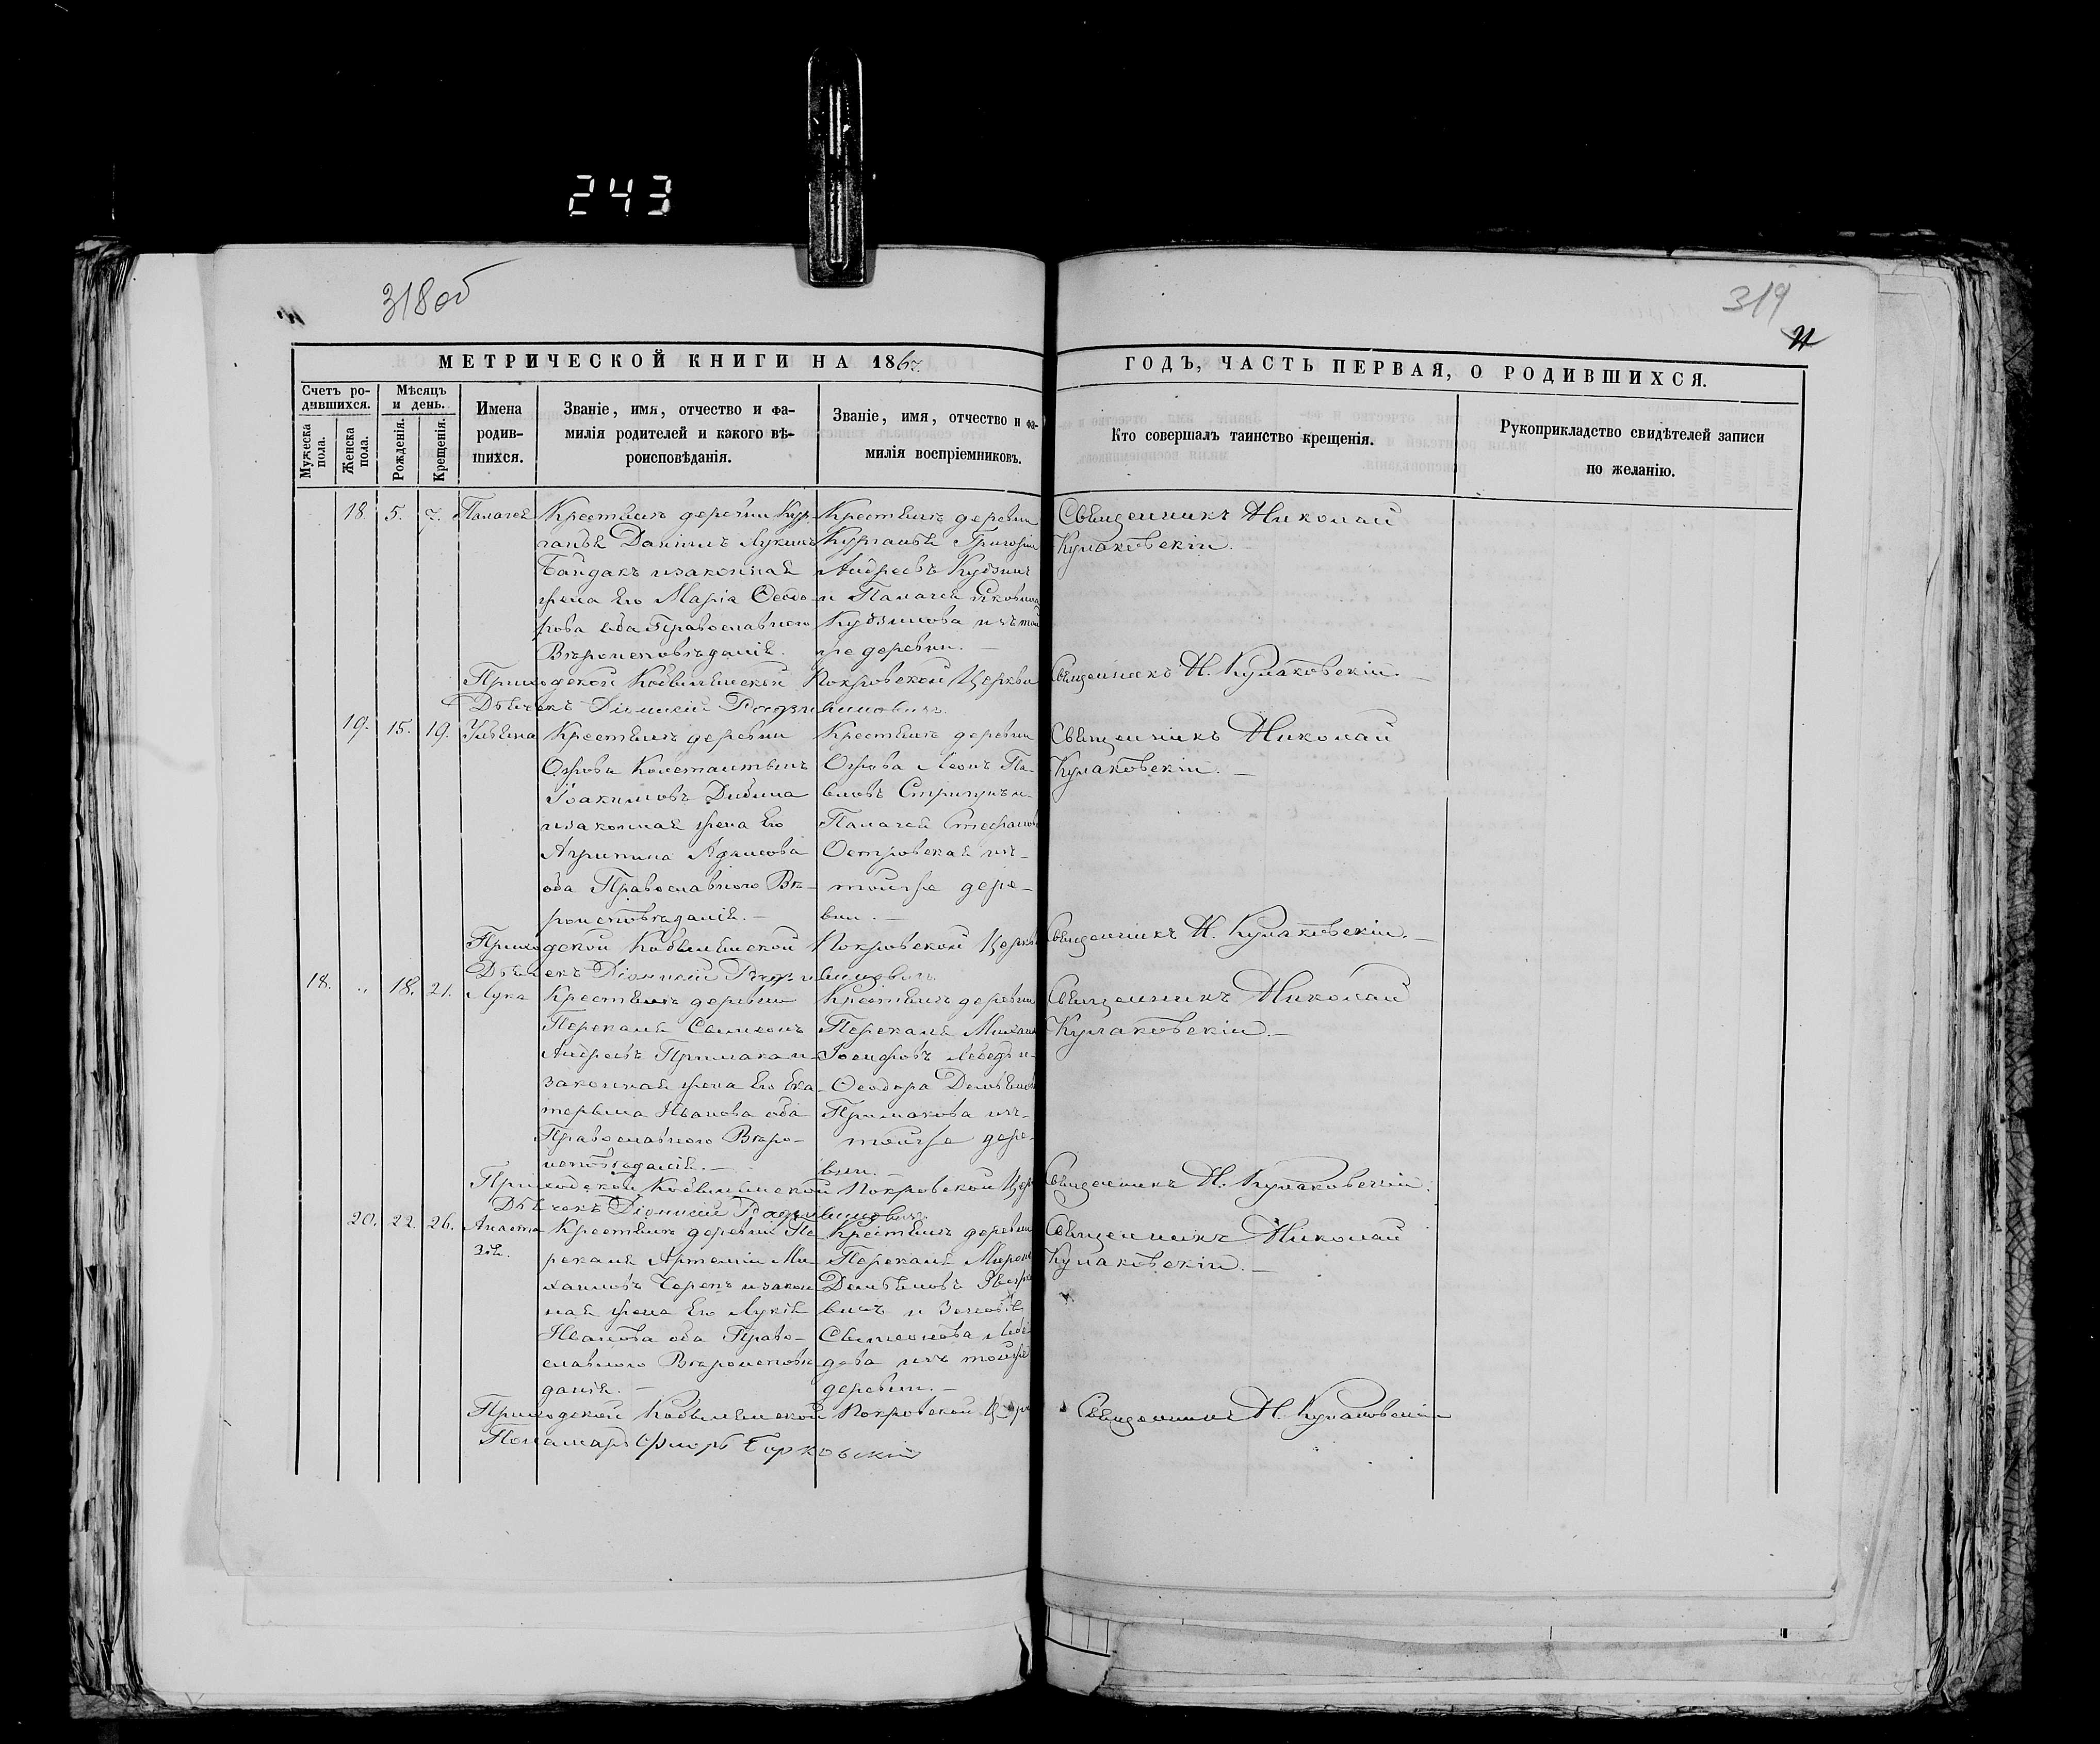 243
318об
319
МЕТРИЧЕСКОЙ КНИГИ НА 1867
ГОДЪ, ЧАСТЬ ПЕРВАЯ, О РОДИВШИХСЯ.
Счетъ ро-
дившихся.
Мужеска
пола.
Женска
пола.
Мѣсяцъ
и день.
Рожденія.
Крещенія.
Имена
родив-
шихся.
Званіе, имя, отчество и фа-
милія родителей и какого вѣ-
роисповѣданія.
Званіе, имя, отчество и фа-
милія воспріемниковъ.
Кто совершалъ таинство крещенія.
Рукоприкладство свидѣтелей записи
по желанію.
18. 5. 7. Палагея
Крестьянъ деревни Кур-
ганья Даніилъ Лукинъ
Байдакъ и законная
жена Его Марія Ѳеодо-
рова оба Православнаго
Вѣроисповѣданія.
Крестьянъ деревни
Курганья Григорій
Андреевъ
и Палагея
изъ той
же деревни.
Священникъ Николай
Кулаковскій.
Приходской Покровской Церкви
Дьячекъ Діонисій
Священникъ Н. Кулаковскій.
19. 15. 19. Ульяна
Крестьянъ деревни
Константинъ
Іоакимовъ
и законная жена Его
Агрипина Адамова
оба Православнаго Вѣ-
роисповѣданія.
Крестьянъ деревни
Леонъ Па-
вловъ
Палагея Стефанова
Островская изъ
тойже дере-
вни.
Священникъ Николай
Кулаковскій.
Приходской Покровской Церкви
Дьячекъ Діонисій
Священникъ Н. Кулаковскій.
18. „ 18. 21. Лука
Крестьянъ деревни
Перекалья Симеонъ
Андреевъ Примака и
законная жена Его Ека-
терына Иванова оба
Православнаго Вѣро-
исповѣданія.
Крестьянъ деревни
Перекалья Михаилъ
Іосифовъ Лебедь и
Ѳеодора Демьянова
Примакова изъ
тойже дере-
вни.
Священникъ Николай
Кулаковскій.
Приходской Покровской
Дьячекъ Діонисій
Священникъ Н. Кулаковскій.
20. 22. 26. Анаста
зія.
Крестьянъ деревни Пе-
рекалья Артемій Ми-
хаиловъ Черепъ и закон
ная жена Его Лукія
Иванова оба Право-
славнаго Вѣроисповѣ-
данія.
Крестьянъ деревни
Перекалья Миронъ
Демьяновъ
и Зеновія
Симеонова Лебе
дева изъ тойже
деревни.
Священникъ Николай
Кулаковскій.
Приходской Покровской
Пономарь
Священникъ Н. Кулаковскій